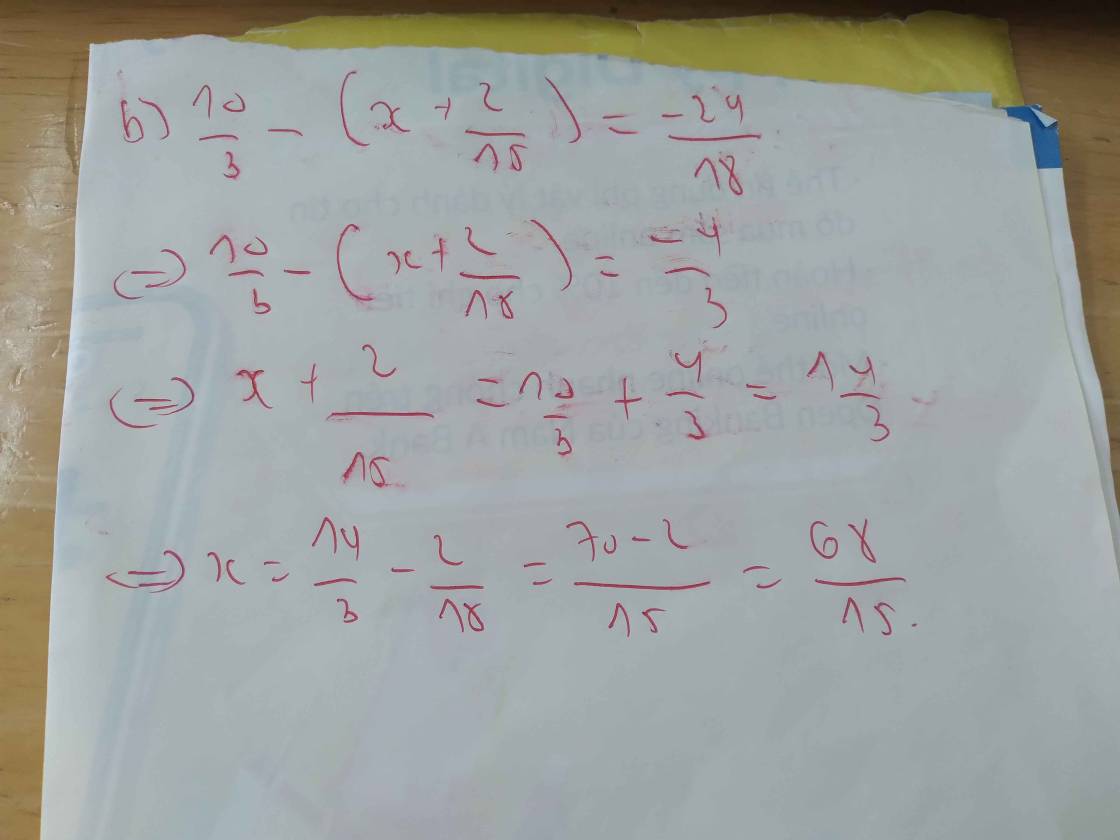 b) 10/3 - (x + 2/15) = -24/18
<=> 10/3 - (x + 2/15) = -4/3
<=> x + 2/15 = 10/3 + 4/3 = 14/3
<=> x = 14/3 - 2/15 = 70-2/15 = 68/15.